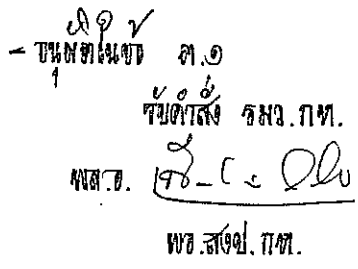 - อนุมัติในข้อ ๓.๑
รับคำสั่ง รมว.กห.
พล.อ.
ผอ.สงป.กห.